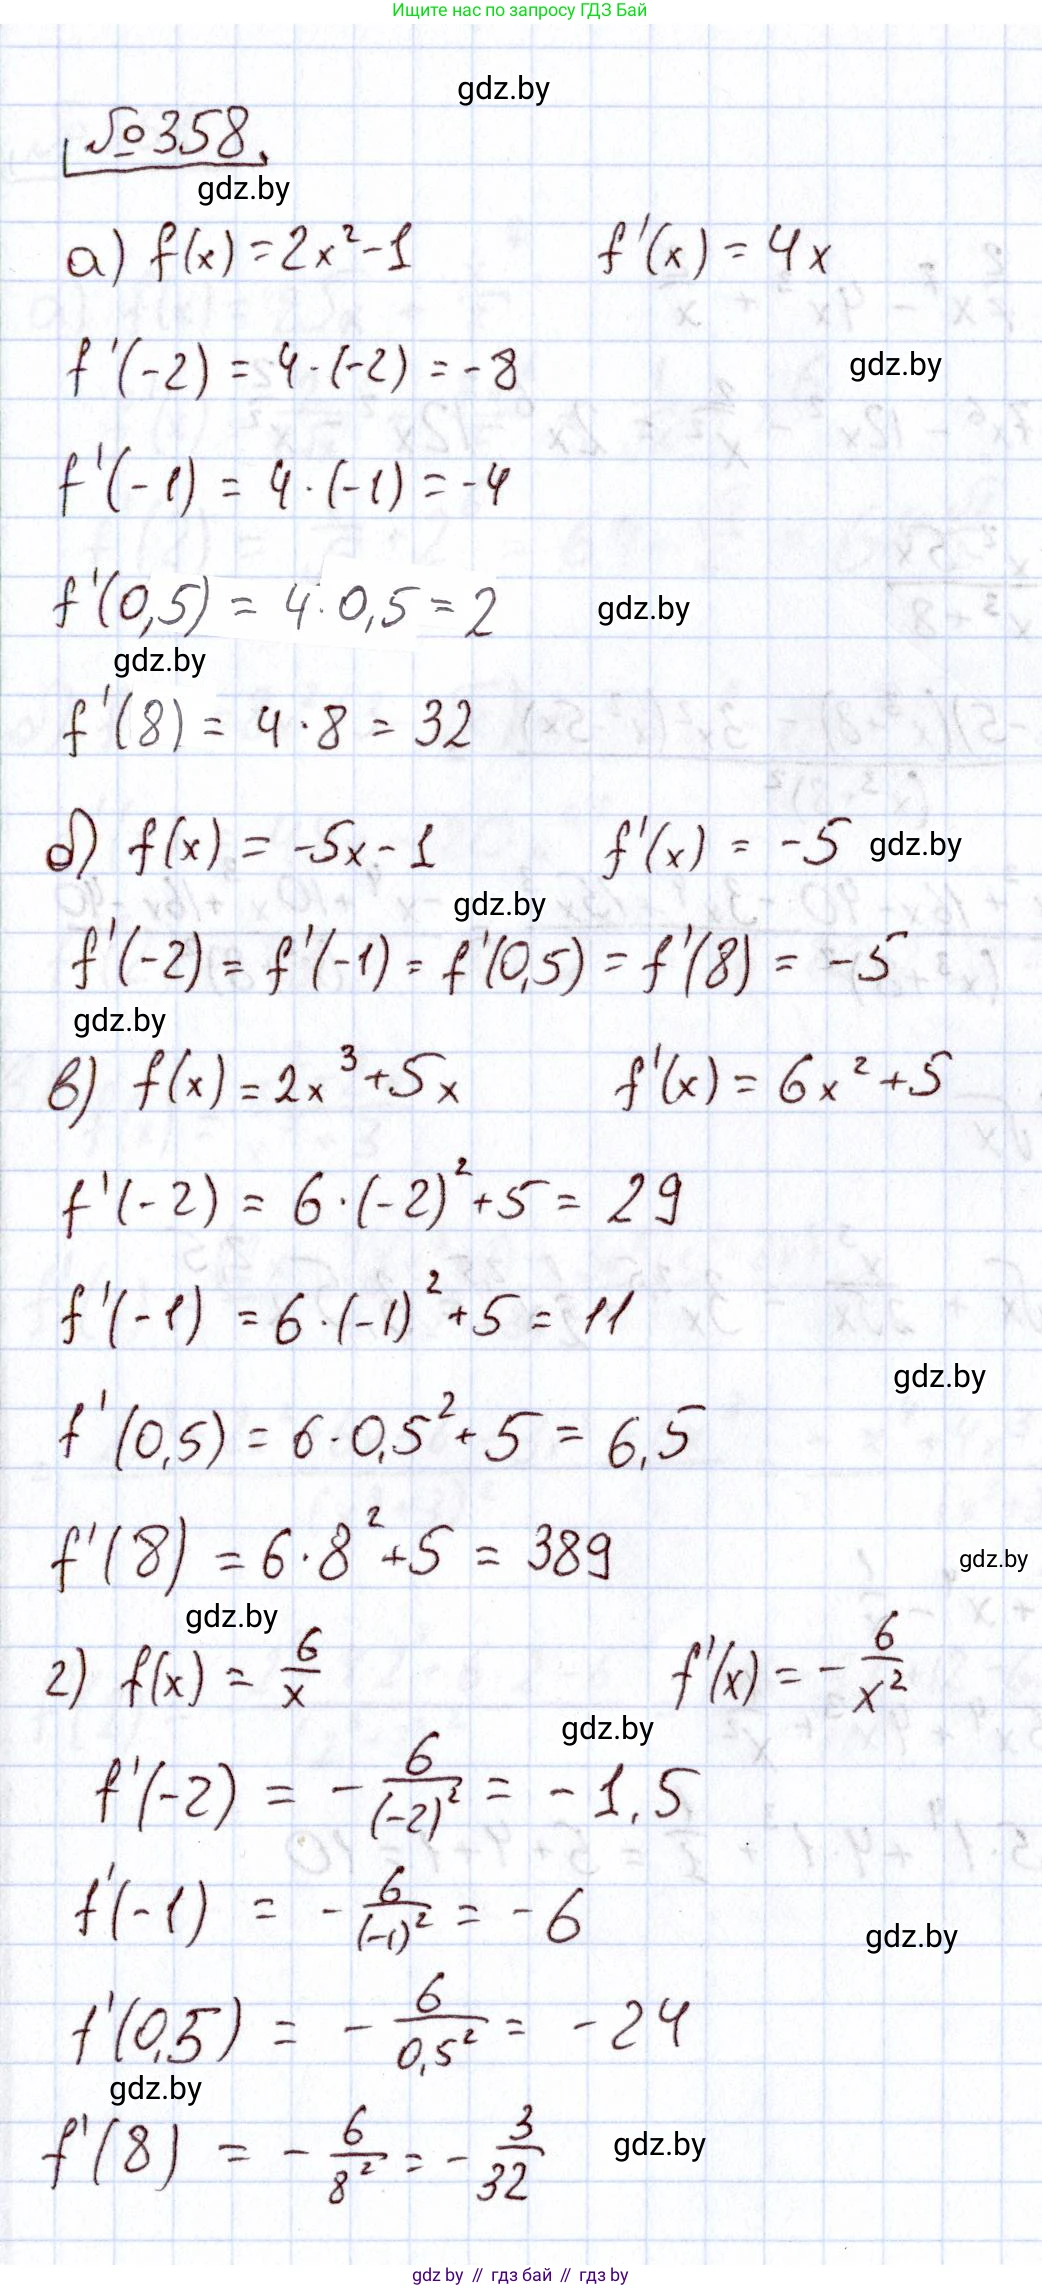 Ищите нас по запросу ГДЗ Бай
gdz.by
№358.
gdz.by
а) f(x) = 2x² - 1 f'(x) = 4x
f'(-2) = 4·(-2) = -8 gdz.by
f'(-1) = 4·(-1) = -4
f'(0,5) = 4·0,5 = 2 gdz.by
gdz.by
f'(8) = 4·8 = 32
б) f(x) = -5x - 1 f'(x) = -5 gdz.by
gdz.by
f'(-2) = f'(-1) = f'(0,5) = f'(8) = -5
gdz.by
в) f(x) = 2x³ + 5x f'(x) = 6x² + 5
f'(-2) = 6·(-2)² + 5 = 29
f'(-1) = 6·(-1)² + 5 = 11
gdz.by
f'(0,5) = 6·0,5² + 5 = 6,5
f'(8) = 6·8² + 5 = 389 gdz.by
gdz.by
г) f(x) = 6/x f'(x) = -6/x²
gdz.by
f'(-2) = -6/(-2)² = -1,5
f'(-1) = -6/(-1)² = -6
gdz.by
f'(0,5) = -6/0,5² = -24
gdz.by
f'(8) = -6/8² = -3/32 gdz.by
gdz.by // гдз бай // гдз by